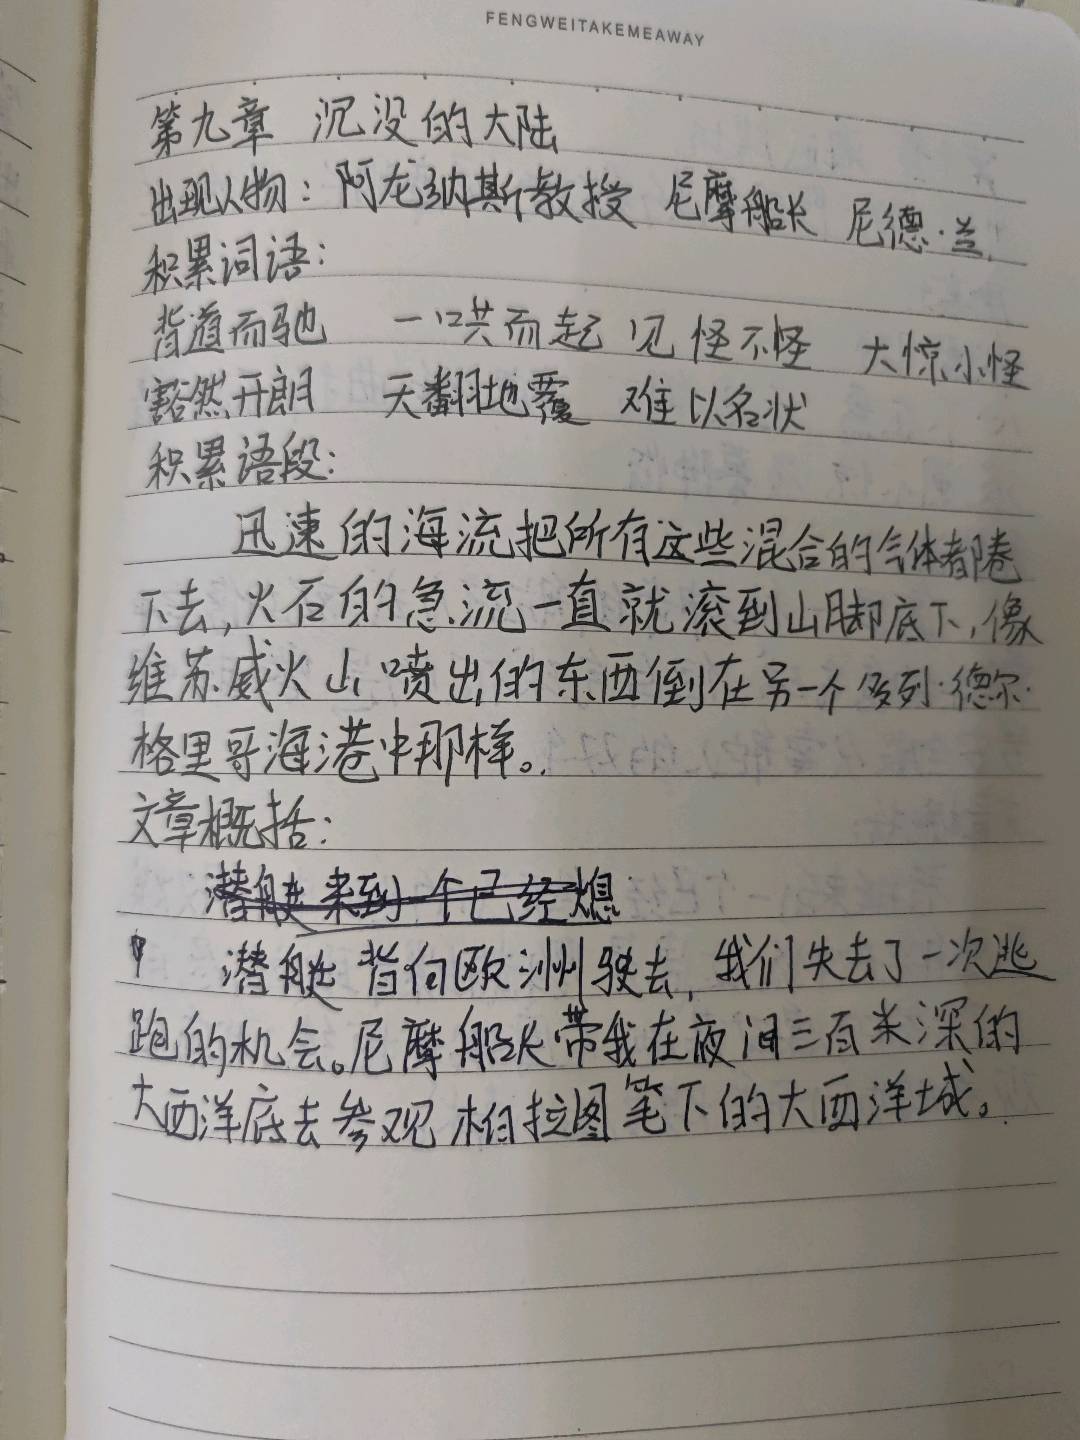 FENGWEITAKEMEAWAY
第九章 沉没的大陆
出现人物：阿龙纳斯教授 尼摩船长 尼德·兰
积累词语：
背道而驰 一哄而起 见怪不怪 大惊小怪
豁然开朗 天翻地覆 难以名状
积累语段：
迅速的海流把所有这些混合的气体都卷
下去，火石的急流一直就滚到山脚底下，像
维苏威火山喷出的东西倒在另一个多列·德尔·
格里哥海港中那样。
文章概括：
潜艇来到一个已经熄
潜艇背向欧洲驶去，我们失去了一次逃
跑的机会。尼摩船长带我在夜间三百米深的
大西洋底去参观柏拉图笔下的大西洋城。